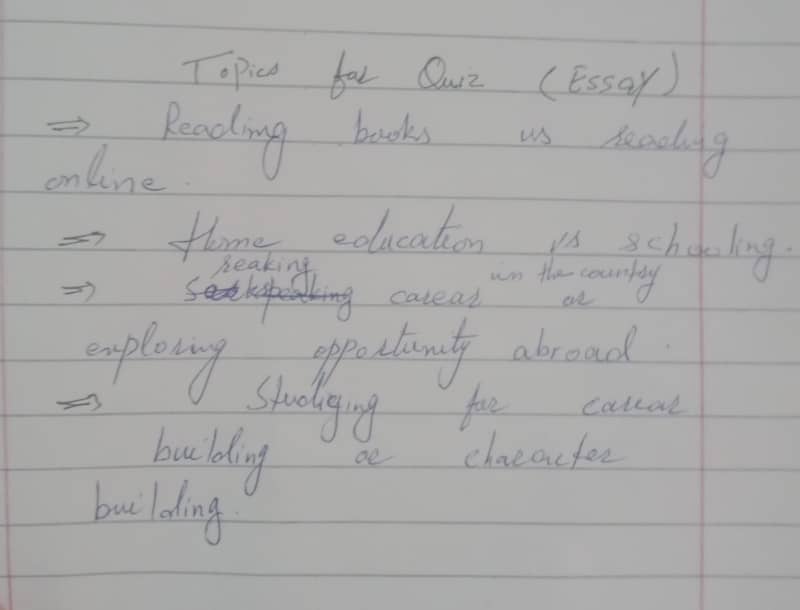 Topics for Quiz (Essay)
⇒ Reading books vs reading
online.
⇒ Home education vs schooling.
reaking in the country
⇒ carear or
exploring opportunity abroad.
⇒ Studying for carear
building or character
building.